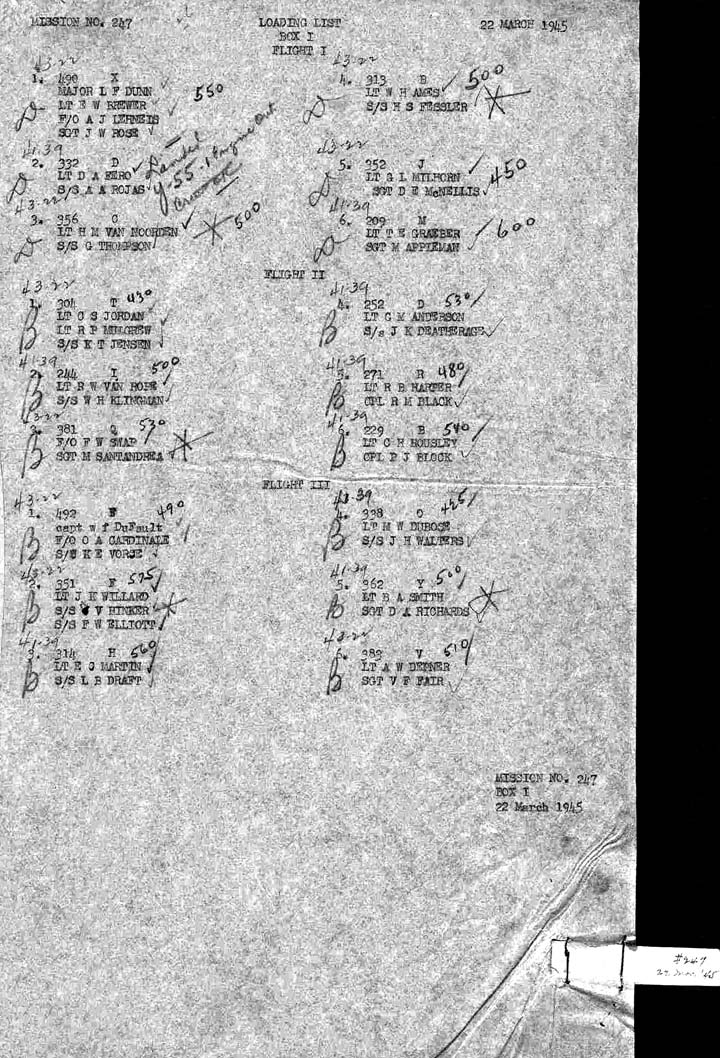 MISSION NO. 247
LOADING LIST
22 MARCH 1945
BOX I
FLIGHT I
43-22
1. 490 X
MAJOR L F DUNN 550
LT E W BREWER
F/O A J LERNEIS
SGT J W ROSE
D
41-39
2. 332 D
LT D A FERO
S/S A A ROJAS
D
Landed
Y-55-1 Engine Out
Crew OK
43-22
3. 356 C
LT H M VAN NOORDEN 500
S/S G THOMPSON
D
43-22
4. 313 B 500
LT W H AMES
S/S H S FESSLER
D
43-22
5. 352 J
LT G L MILHORN 450
SGT D E McNELLIS
D
41-39
6. 209 M
LT T E GRAEBER 600
SGT M APPLEMAN
D
FLIGHT II
43-22
1. 304 T 430
LT C S JORDAN
LT R P MULGREW
S/S K T JENSEN
B
41-39
2. 244 I 500
LT R W VAN HOPE
S/S W H KLINGMAN
B
43-22
3. 381 Q 530
F/O F W SWAP
SGT M SANTANDREA
B
41-39
4. 252 D 530
LT G M ANDERSON
S/s J K DEATHERAGE
B
41-39
5. 271 R 480
LT R B HARPER
CPL R M BLACK
B
41-39
6. 229 B 540
LT C H HOUSLEY
CPL P J BLOCK
B
FLIGHT III
43-22
1. 492 F 490
capt w f DuFault
F/O O A CARDINALE
S/S K E VORJE
B
43-22
2. 351 F 525
LT J K WILLARD
S/S V HINKER
S/S F W ELLIOTT
B
41-39
3. 314 H 560
LT E J MARTIN
S/S L B DRAFT
B
41-39
4. 338 O 425
LT M W DUBOSE
S/S J H WALTERS
B
41-39
5. 962 Y 500
LT B A SMITH
SGT D A RICHARDS
B
43-22
6. 383 V 510
LT A W DEPNER
SGT V F FAIR
B
MISSION NO. 247
BOX I
22 March 1945
#247
22 Mar. '45